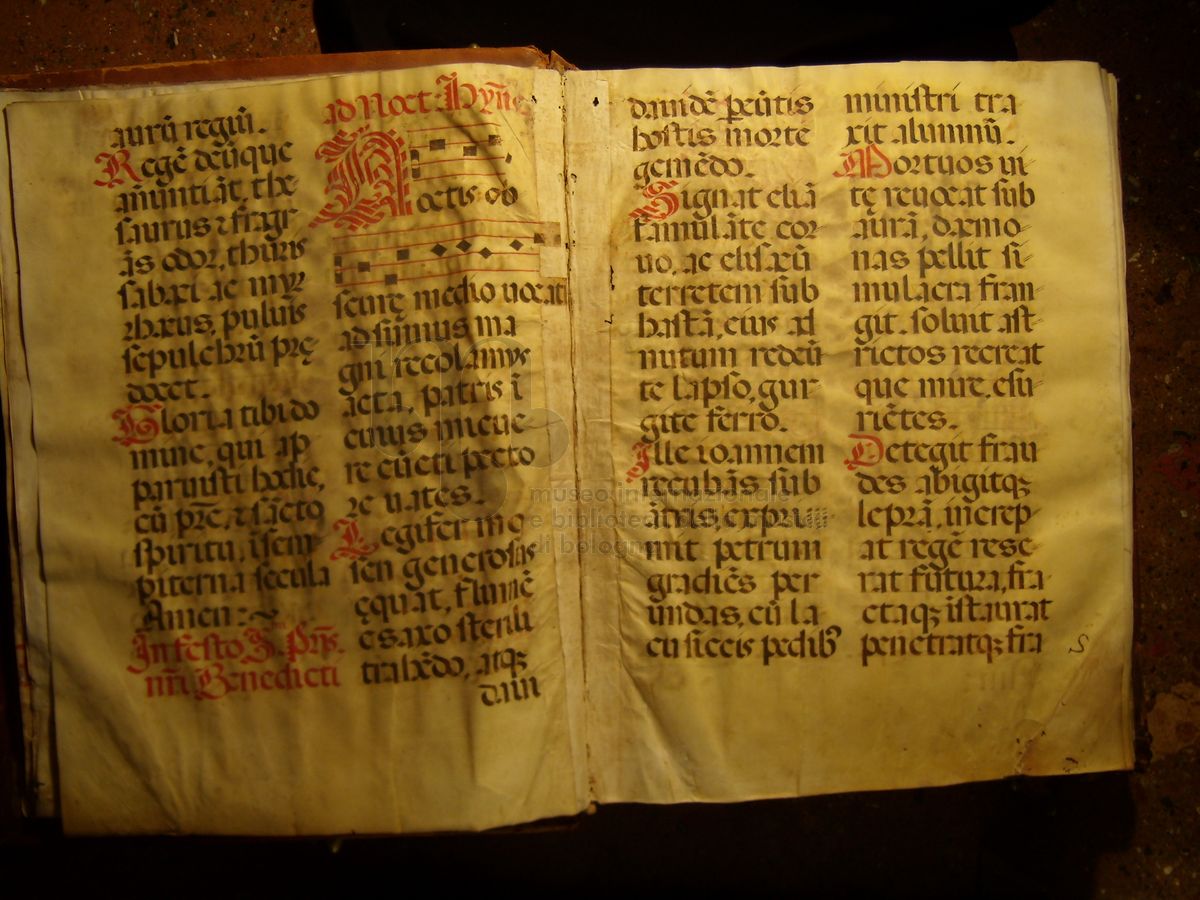 aurū regiū.
Regē deūque
añuntiāt, the
saurus ⁊ fragr
ās odor, thuris
sabaei ac myr
rhaeus, puluis
sepulchrū prę
docet.
Gloria tibi do
mine, qui ap
paruisti hodie,
cū pr̄e, ⁊ sācto
spiritu, ī sem
piterna secula
Amen:~
In festo S. Pr̄is.
nr̄i Benedicti
ad Noct: Hym̄e
Noctis ob
scurę medio uocati
adsumus ma
gni recolamus
acta, patris ī
cuius meue
re cūcti pecto
re uates.
Legifer mo
sen generosus
ęquat, flumē
e saxo sterili
trahēdo, atqꝫ
daui
dauidē pcūtis
hostis morte
gemēdo.
Signat eliā
famulāte cor
uo, ac elisaeū
terretem sub
hastā, eius ad
nutum redeū
te lapso, gur
gite ferro.
Ille ioannem
recubās sub
ātris, expri
mit petrum
gradiēs per
undas, cū la
cu siccis pedibꝰ
ministri tra
xit alumnū.
Mortuos ui
tę reuocat sub
aurā, daemo-
nas pellit si-
mulacra fran-
git. soluit ast-
rictos recreat
que mire, esu-
riētes.
Detegit frau
des abigitqꝫ
leprā, increp-
at regē rese-
rat futura, fra-
ctaqꝫ īstaurat
penetratqꝫ fra
S
museo internazionale
e biblioteca della musica
di bologna